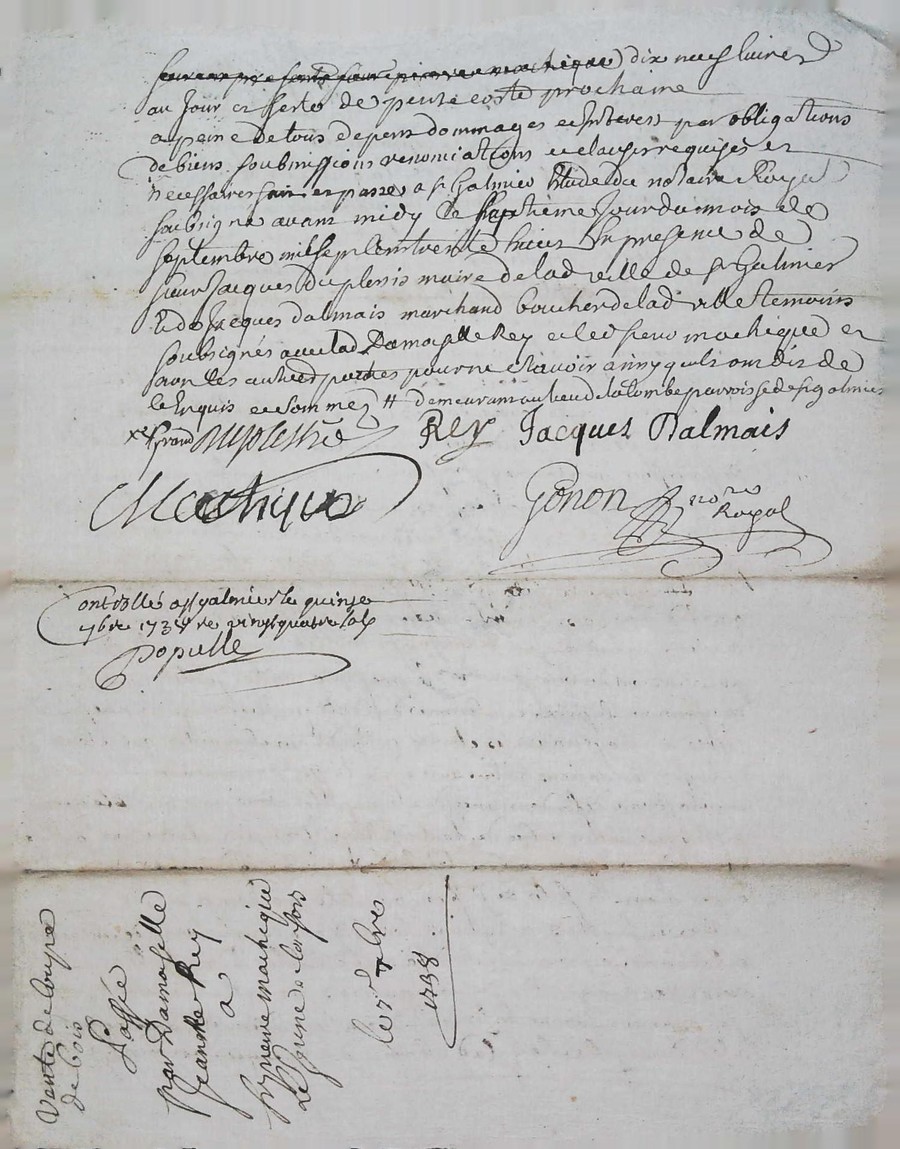 dix neuf livres
au jour et feste de pente coste prochaine
a peine de tous depens dommages et interest par obligations
de biens soubmissions renonciations et clauses requises et
necessaires fait et passé a st Galmier Etude du notaire Royal
soubsigné avant midy le septième jour du mois de
septembre mil sept cent trente huict En presence de
sieur Jacques duplessis maire de lad ville de st Galmier
& de Jacques dalmais marchand boucher de lad ville temoins
soubsignés avec lad Damoiselle Rey et led sieur mathique et
non les autres parties pour ne sçavoir ainsy quils ont dit de
ce Enquis et sommez # demeurant au lieu de la tombe parroisse de st galmier
Rey Jacques Dalmais
Mathique
Gonon nore Royal
Controllé a st galmier le quinze
7bre 1738 re vingt quatre sols
Populle
Vente de coupe
de bois
Passée
par Damoiselle
Jeanne Rey
a
sr pierre mathique
Le jeune
le 7e 7bre
1738